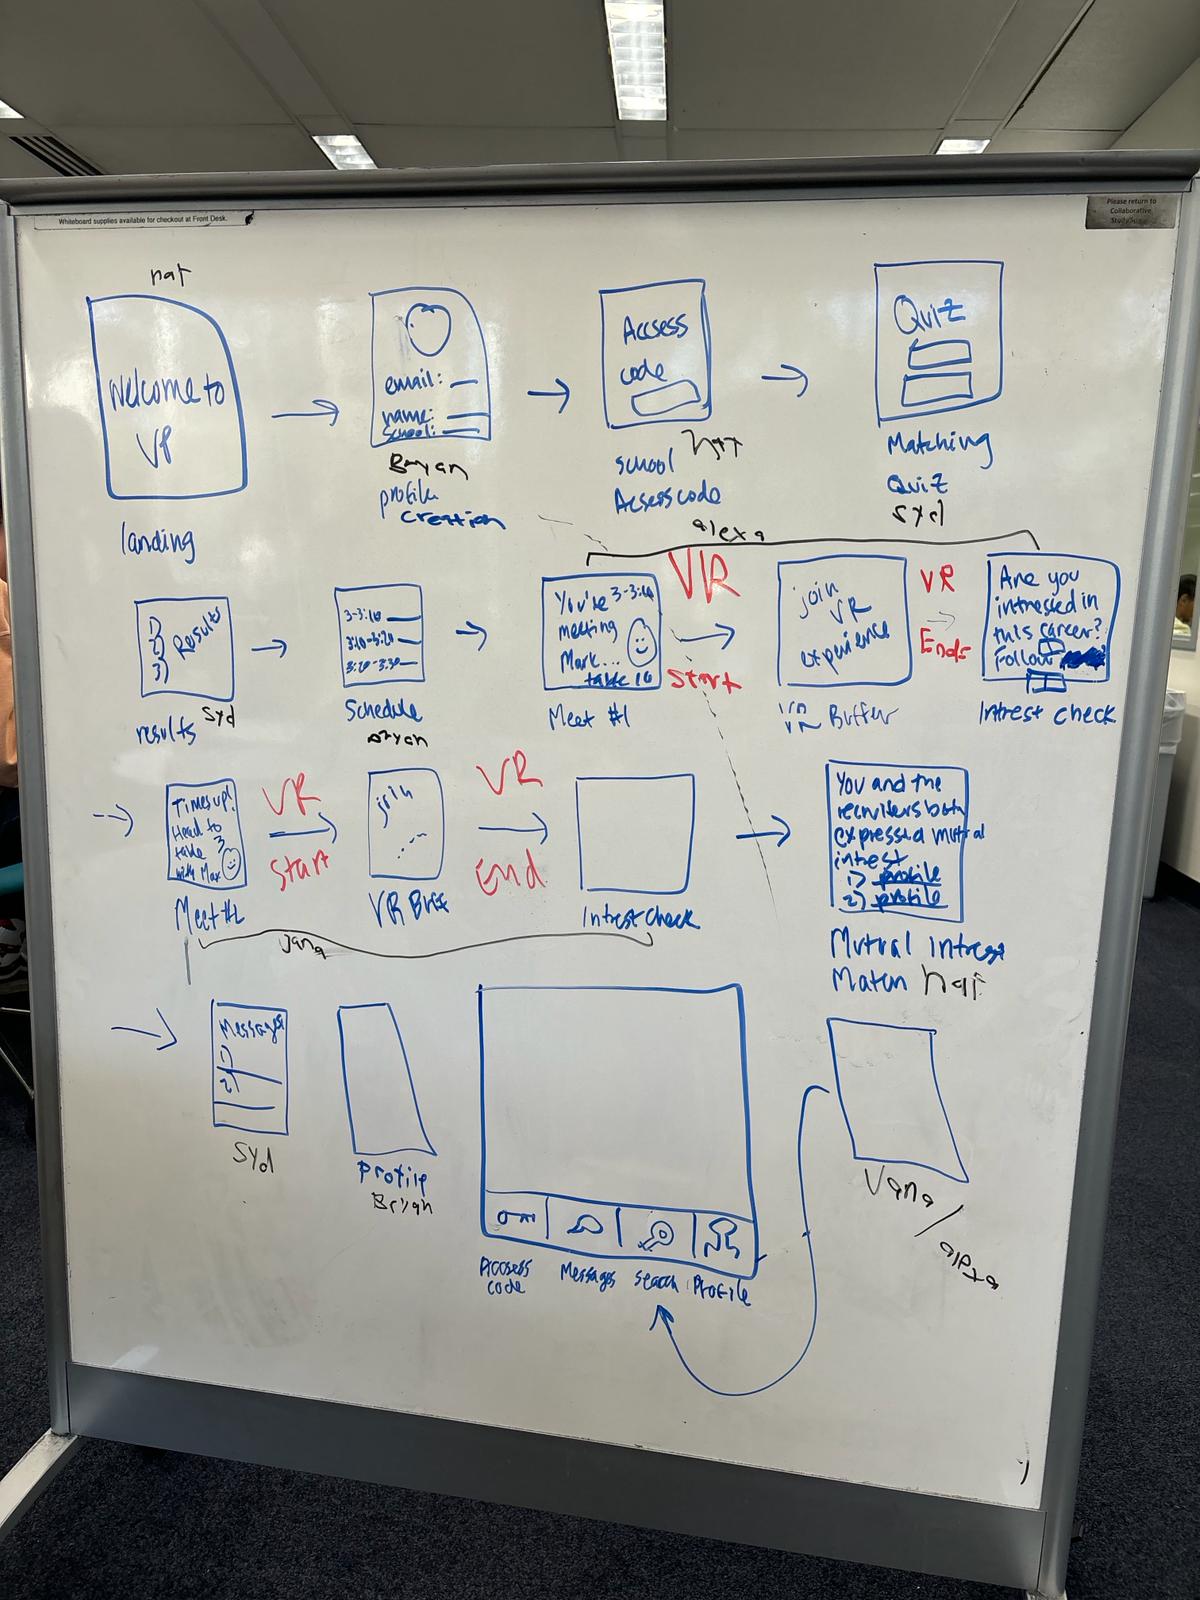 Whiteboard supplies available for checkout at Front Desk.
Please return to
Collaborative
nat
Welcome to
VP
landing
email:
name:
school:
Bryan
profile
creation
Accsess
code
nat
school
Acsesscode
Quiz
Matching
Quiz
syd
alexa
1)
2)
3)
Results
syd
results
3-3:10
3:10-3:20
3:20-3:30
Schedule
Bryan
You're 3-3:10
meeting
Mark...
table 10
Meet #1
VR
Start
join
VR
experience
VR Buffer
VR
Ends
Are you
intrested in
this career?
Follow
Intrest check
Times up!
Head to
table 3
with Max
Meet #2
VR
Start
join
...
VR Buff
VR
End
Intrest check
Jana
You and the
recruiters both
expressed mutral
intrest
1) profile
2) profile
Mutral intrest
Match nat
Messages
1)
2)
Syd
Profile
Bryan
Accsess
code
Messages
search
Profile
/ alexa